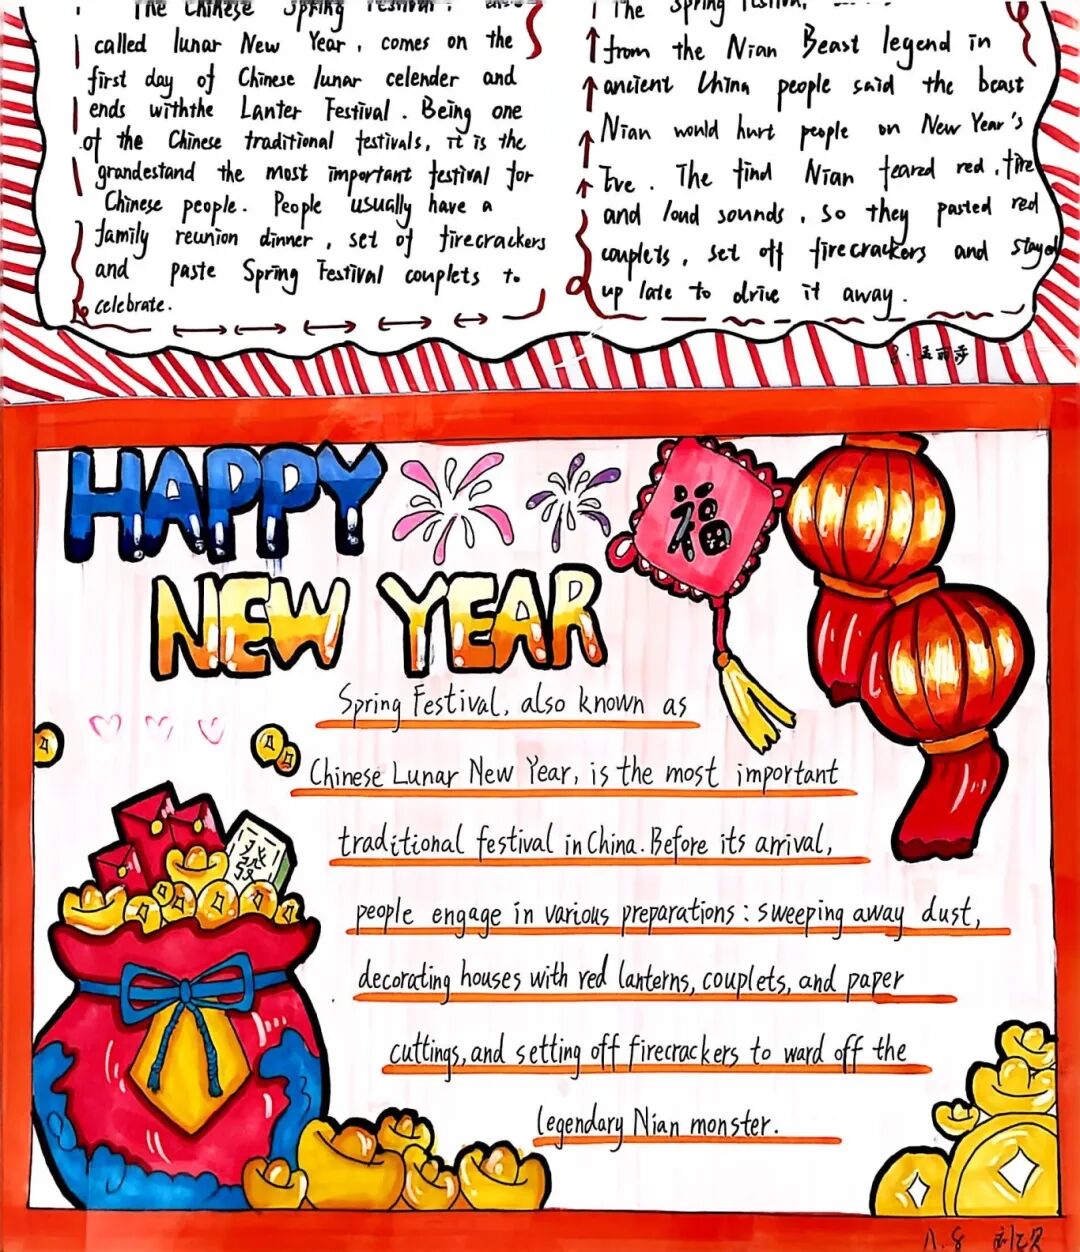 The Chinese Spring Festival,
called lunar New Year, comes on the
first day of Chinese lunar celender and
ends withthe Lanter Festival. Being one
of the Chinese traditional festivals, it is the
grandestand the most important festival for
Chinese people. People usually have a
family reunion dinner, set of firecrackers
and paste Spring Festival couplets to
celebrate.
The Spring
from the Nian Beast legend in
ancient China people said the beast
Nian would hurt people on New Year's
Eve. The find Nian feared red, fire
and loud sounds, so they pasted red
couplets, set off firecrackers and stayed
up late to drive it away.
HAPPY
NEW YEAR
福
Spring Festival, also known as
Chinese Lunar New Year, is the most important
traditional festival in China. Before its arrival,
people engage in various preparations: sweeping away dust,
decorating houses with red lanterns, couplets, and paper
cuttings, and setting off firecrackers to ward off the
legendary Nian monster.
八.8